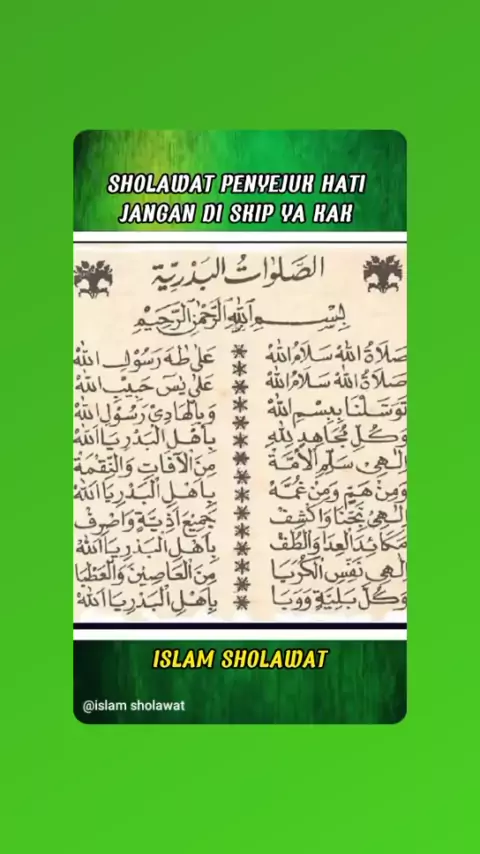 SHOLAWAT PENYEJUK HATI
JANGAN DI SKIP YA KAK
الصَّلَوَاتُ البَدْرِيَّة
بِسْمِ اللهِ الرَّحْمٰنِ الرَّحِيْمِ
صَلَاةُ اللهْ سَلَامُ اللهْ * عَلَى طٰهَ رَسُوْلِ اللهْ
صَلَاةُ اللهْ سَلَامُ اللهْ * عَلَى يٰسٓ حَبِيْبِ اللهْ
تَوَسَّلْنَا بِبِسْمِ اللهْ * وَبِالْهَادِيْ رَسُوْلِ اللهْ
وَكُلِّ مُجَاهِدٍ لِلّٰهِ * بِاَهْلِ الْبَدْرِ يَا اَللهْ
اِلٰهِيْ سَلِّمِ الْاُمَّةْ * مِنَ الْاٰفَاتِ وَالنِّقْمَةْ
وَمِنْ هَمٍّ وَمِنْ غُمَّهْ * بِاَهْلِ الْبَدْرِ يَا اَللهْ
اِلٰهِيْ نَجِّنَا وَاكْشِفْ * جَمِيْعَ اَذِيَّةٍ وَاصْرِفْ
مَكَائِدَ الْعِدَا وَالْطُفْ * بِاَهْلِ الْبَدْرِ يَا اَللهْ
اِلٰهِيْ نَفِّسِ الْكُرَبَا * مِنَ الْعَاصِيْنَ وَالْعَطْبَا
وَكُلَّ بَلِيَّةٍ وَوَبَا * بِاَهْلِ الْبَدْرِ يَا اَللهْ
ISLAM SHOLAWAT
@islam sholawat